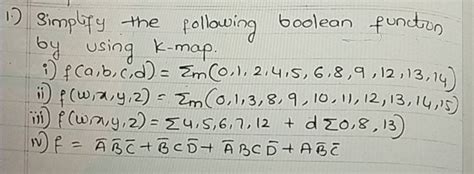 1) Simplify the following boolean function
by using k-map.
i) f(a,b,c,d) = Σm(0,1,2,4,5,6,8,9,12,13,14)
ii) f(w,x,y,z) = Σm(0,1,3,8,9,10,11,12,13,14,15)
iii) f(w,x,y,z) = Σ4,5,6,7,12 + dΣ0,8,13)
iv) f = A̅B̅C̅ + B̅CD̅ + A̅BCD̅ + AB̅C̅